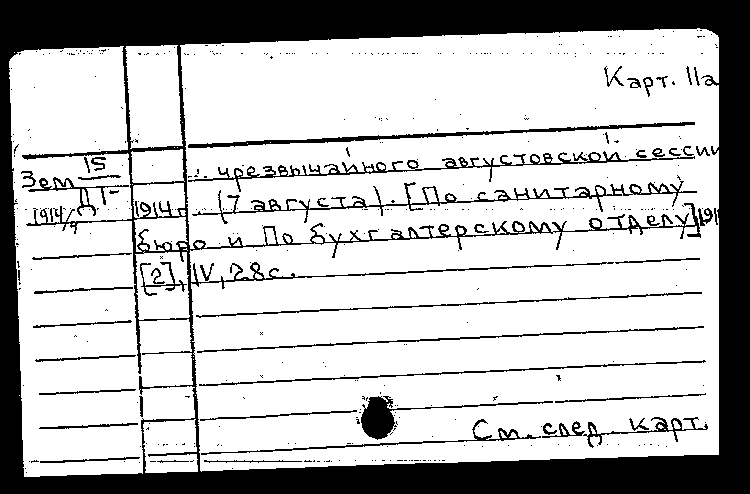 Карт. IIа
15
Зем ДГ
1914/7
... чрезвычайного августовской сессии
1914 г. (7 августа). [По санитарному
бюро и По бухгалтерскому отделу] 191
[2], IV, 28 с.
См. след. карт.